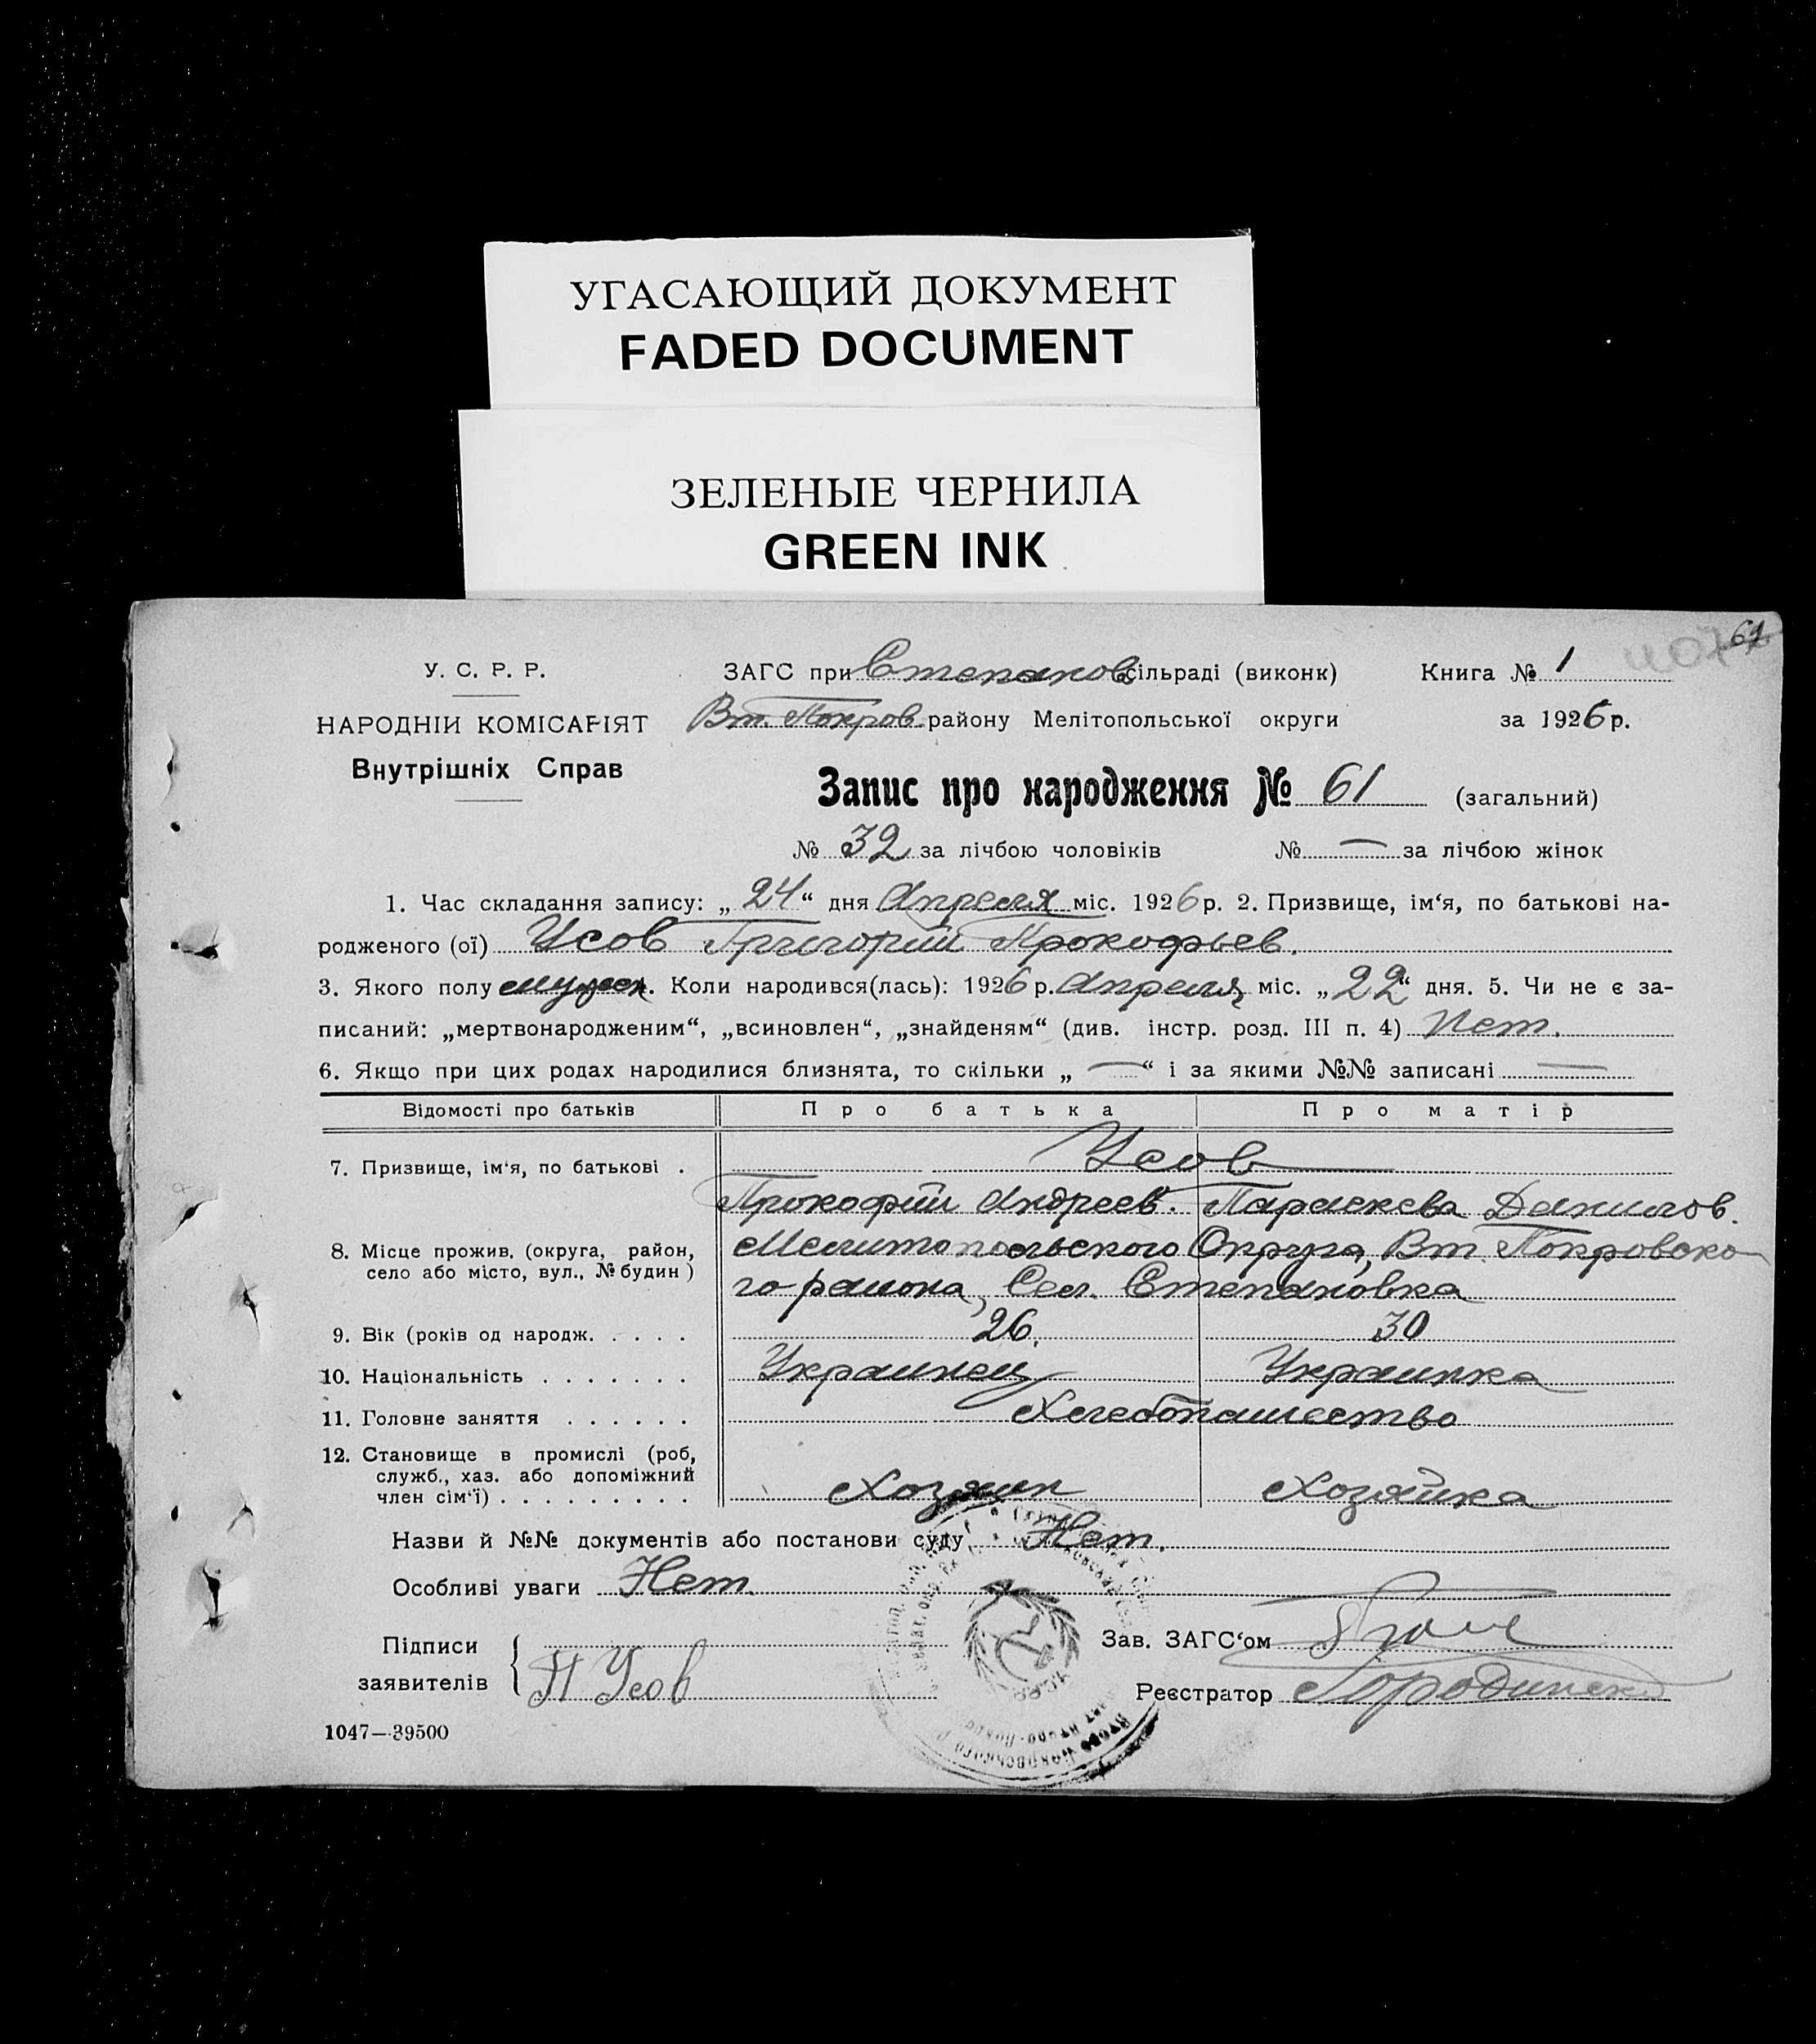 УГАСАЮЩИЙ ДОКУМЕНТ
FADED DOCUMENT
ЗЕЛЕНЫЕ ЧЕРНИЛА
GREEN INK
61
У. С. Р. Р.
ЗАГС при Степанов сільраді (виконк) Книга № 1
НАРОДНІЙ КОМІСАРІЯТ
Вт. Покров. району Мелітопольської округи за 1926 р.
Внутрішніх Справ
Запис про народження № 61 (загальний)
№ 32 за лічбою чоловіків № — за лічбою жінок
1. Час складання запису: „24“ дня Апреля міс. 1926 р. 2. Призвище, ім‘я, по батькові на-
родженого (ої) Усов Григорий Прокофьев.
3. Якого полу мужск. Коли народився(лась): 1926 р. Апреля міс. „22“ дня. 5. Чи не є за-
писаний: „мертвонародженим“, „всиновлен“, „знайденям“ (див. інстр. розд. III п. 4) Нет.
6. Якщо при цих родах народилися близнята, то скільки „—“ і за якими №№ записані —
Відомості про батьків Про батька Про матір
7. Призвище, ім‘я, по батькові . Усов
Прокофий Андреев. Параскева Данилов.
8. Місце прожив. (округа, район, село або місто, вул., № будин ) Мелитопольского Округа, Вт. Покровско
го района, Сел. Степановка
9. Вік (років од народж. . . . . 26. 30
10. Національність . . . . . . . Украинец Украинка
11. Головне заняття . . . . . . Хлебопашество
12. Становище в промислі (роб,
служб., хаз. або допоміжний
член сім‘ї) . . . . . . . . . Хозяин Хозяйка
Назви й №№ документів або постанови суду Нет.
Особливі уваги Нет.
Підписи
заявителів П Усов
Зав. ЗАГС‘ом
Реєстратор
1047—39500